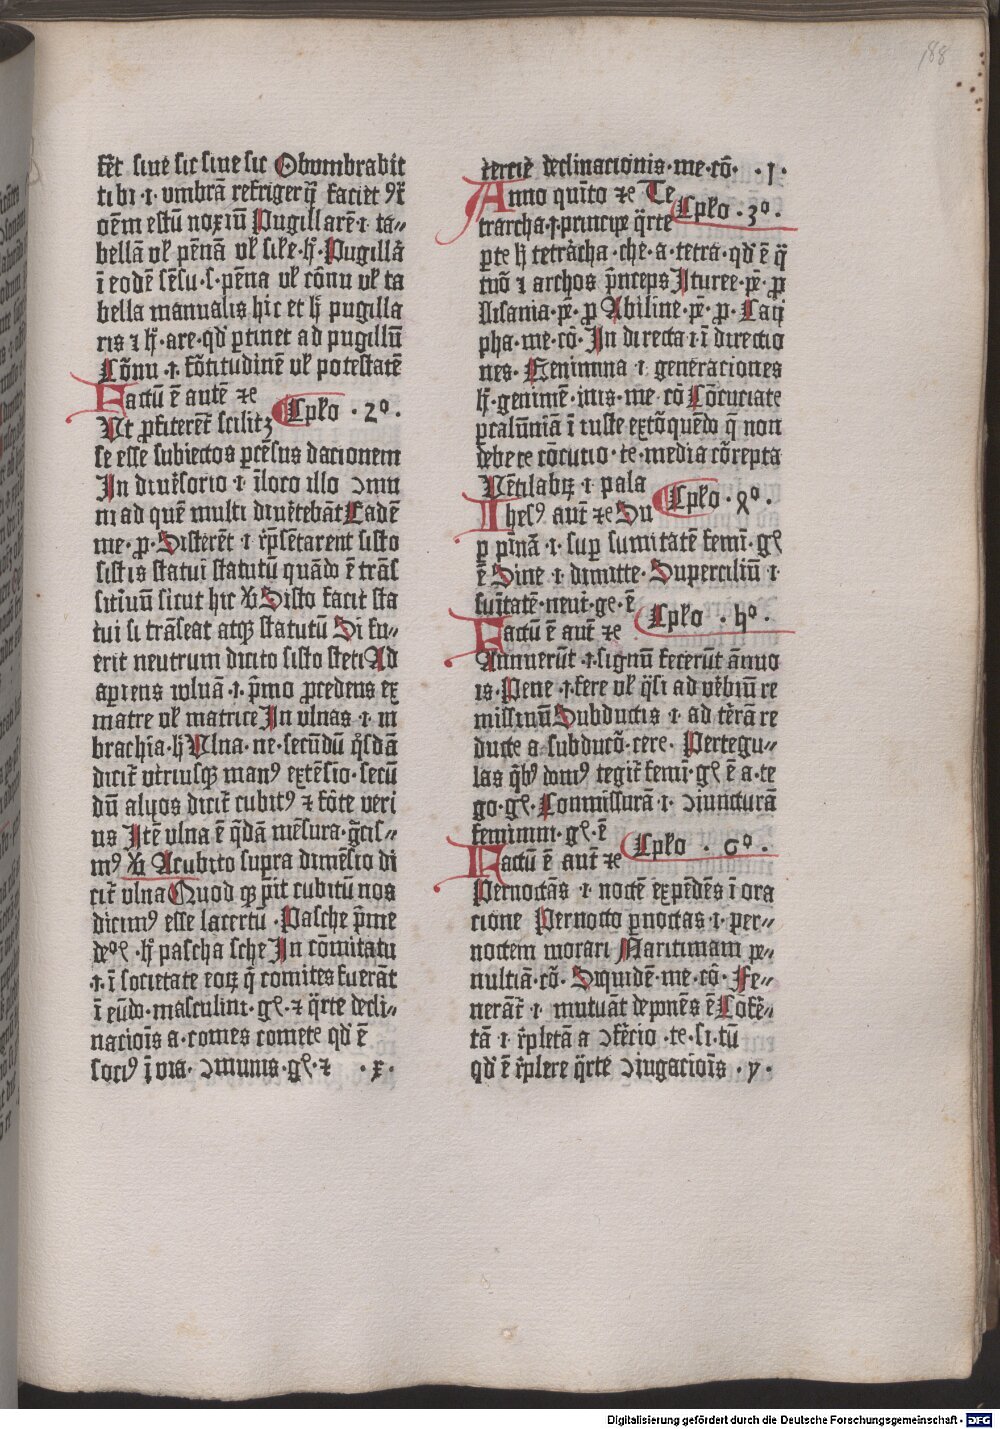 188
fet̄ siue sic siue sic Obumbrabit
tibi ·i· vmbrā refrigerꝗ̄ faciet ꝯt̄
oēm estū noxiū Pugillarē ·i· ta⸗
bellā vl̄ pēnā vl̄ sil̄e · hˀ · Pugillā
ī eodē sēsu · s · pēna vl̄ cōnu vl̄ ta
bella manualis hic et hˀ pugilla
ris ⁊ hˀ · are · qd̄ ꝑtinet ad pugillū
Cōnu ·i· fōtitudinē vl̄ potestatē
Factū ē autē ⁊c̄
Cpl̄o · 2º ·
Vt ꝓfiterēt̄ scilitꝫ
se esse subiectos ꝑ cēsus dacionem
In diuēsorio ·i· ī loco illo ↄmu
ni ad quē multi diuētebāt Eadē
me · ꝓ · Sisterēt ·i· rp̄sētarent sisto
sistis statui statutū quādo ē trās
sitiuū sicut hic v̄s Sisto facit sta
tui si trāseat atqꝫ statutū Si fu⸗
erit neutrum dicito sisto steti Ad
aꝑiens wluā ·i· pīmo ꝓcedens ex
matre vl̄ matrice In vlnas ·i· in
brachia · hˀ Vlna · ne · secūdū qͦsdā
dicit̄ vtriusqꝫ manꝰ extēsio · secū
dū aliꝗos dicit̄ cubitꝰ ⁊ fōte veri
us Itē vlna ē qͣdā mēsura · gͣcis⸗
mꝰ v̄s Acubito supra dimēsio di
cit̄ vlna Quod qꝫ p̄it cubitū nos
dicimꝰ esse lacertū · Pasche p̄me
deºl̄ · hˀ pascha sche In cōmitatu
·i· ī societate eoꝝ q̄ comites fuerāt
ī eūdo · masculini · gl̄ · ⁊ q̄rte decli⸗
nacioīs a · comes comete qd̄ ē
sociꝰ ī via · ↄmunis · gl̄ · ⁊ · x ·
tercie declinacionis · me · cō · · 1 ·
Anno quīto ⁊c̄ Te
Cpl̄o · 3º ·
trarcha ·i· princip̄e q̄rte
ꝑte hˀ tetrācha · che · a · tetra · qd̄ ē q̄
tuō ⁊ archos p̄nceps Ituree · pē · ꝓ
Lisania · pē · ꝓ Abiline · pē · ꝓ · Caꝗ
pha · me · cō · In directa ·i· ī directio
nes · Genimina ·i· generaciones
hˀ · genimē · inis · me · cō Cōcuciate
ꝑ calūniā ī iuste extōquēdo q̄ non
debete cōcutio · te · media cōrepta
Vētilabꝝ ·i· pala
Cpl̄o · 4º ·
Ihesꝰ aut̄ ⁊c̄ Su
ꝑ pīnā ·i· suꝑ sumitatē femī · gl̄
ē Sine ·i· dimitte · Superciliū ·i·
sūītatē · neut̄ · ge · ē
Cpl̄o · 5º ·
Factū ē aut̄ ⁊c̄
Annuerūt ·i· signū fecerūt ānuo
is · Pene ·i· fere vl̄ q̄si ad vēbiū re
missiuū Subductis ·i· ad tērā re
ducte a subducō · cere · Pertegu⸗
las qͥbꝰ domꝰ tegit̄ femī · gl̄ ē a · te
go · gl̄ · Commissurā ·i· ↄiuncturā
feminini · gl̄ · ē
Cpl̄o · 6º ·
Factū ē aut̄ ⁊c̄
Pernoctās ·i· noctē expēdēs ī ora
cione Pernocto ꝑnoctas ·i· per⸗
noctem morari Maritimam pe⸗
nultiā · cō · Siquidē · me · cō · Fe⸗
nerāt̄ ·i· mutuāt deponēs ē Cofē⸗
tā ·i· r̄pletā a ↄfēcio · te · si · tū
qd̄ ē r̄plere q̄rte ↄiugacioīs · y ·
Digitalisierung gefördert durch die Deutsche Forschungsgemeinschaft - DFG